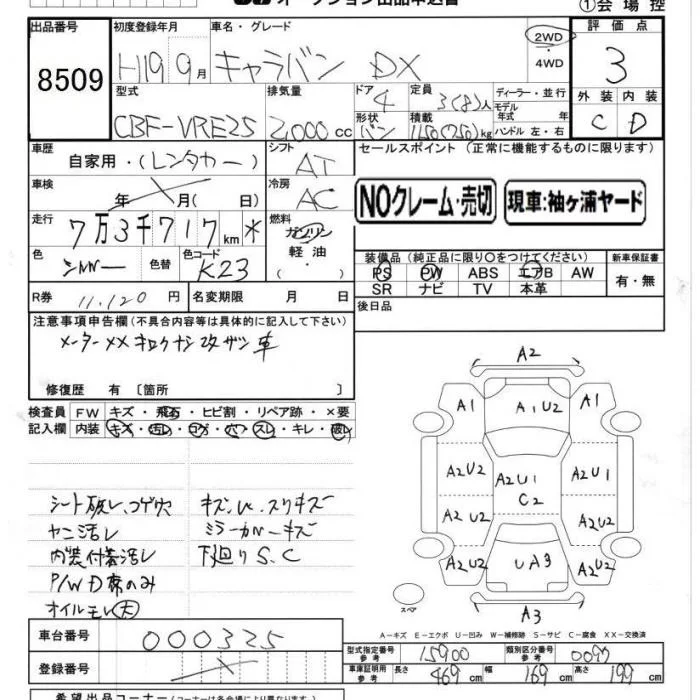 オークション出品申込書
①会場控
出品番号 8509
初度登録年月 H19 9月
車名・グレード キャラバン DX
2WD ・ 4WD
評価点 3
外装 C 内装 D
型式 CBF-VRE25
排気量 2,000cc
ドア 4 定員 3(8)人
形状 バン 積載 1150(750)kg
ディーラー・並行
モデル年式 年式
ハンドル 左・右
車歴 自家用・(レンタカー)
シフト AT
セールスポイント (正常に機能するものに限ります)
車検 年 月(日)
冷房 AC
NOクレーム・売切
現車:袖ヶ浦ヤード
走行 7万3千717km *
燃料 ガソリン 軽油・
色 シルバー 色替 色コード K23
装備品 (純正品に限り〇をつけてください)
新車保証書 有・無
PS PW ABS エアB AW
SR ナビ TV 本革
R券 11,120円
名変期限 月 日
後日品
注意事項申告欄(不具合内容等は具体的に記入して下さい)
メーター××キロクナシ改ザン車
修復歴 有 〔箇所 〕
検査員記入欄
FW キズ・飛石・ヒビ割・リペア跡・×要
内装 キズ・汚れ・コゲ・穴・スレ・キレ・破れ
シート破レ、コゲ穴
ヤニ汚レ
内装付着汚レ
P/W D席のみ
オイルモレ大
ミラーカバーキズ
下廻りS.C
A2
A1 A1U2 A1
A2U2 A2U1 A2U1
C2
A2U2 A2U2
A2U2 UA3 A2U2
A3
スペア
A-キズ E-エクボ U-凹み W-補修跡 S-サビ C-腐食 XX-交換済
車台番号 000325
登録番号
型式指定番号 参考 15900
類別区分番号 参考 0097
車庫証明用 参考 長さ 469cm 幅 169cm 高さ 199cm
希望出品コーナー(コーナーは各会場により異なります)